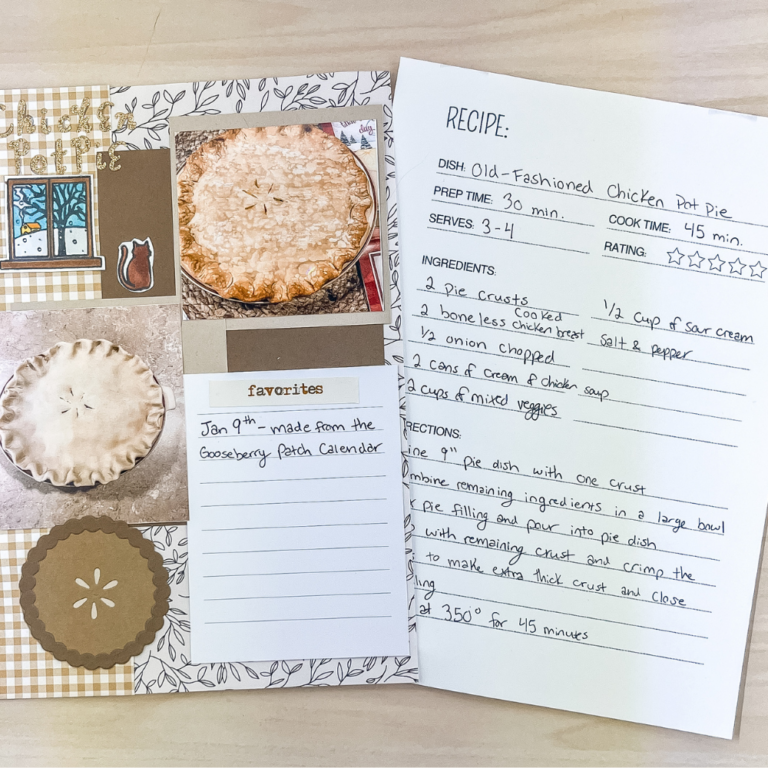 Chicken
Pot Pie
favorites
Jan 9th - made from the
Gooseberry Patch Calendar
RECIPE:
DISH: Old-Fashioned Chicken Pot Pie
PREP TIME: 30 min.
COOK TIME: 45 min.
SERVES: 3-4
RATING:
INGREDIENTS:
2 pie crusts
2 boneless cooked chicken breast
1/2 onion chopped
2 cans of cream of chicken soup
2 cups of mixed veggies
1/2 cup of sour cream
Salt & pepper
RECTIONS:
ine 9" pie dish with one crust
mbine remaining ingredients in a large bowl
pie filling and pour into pie dish
with remaining crust and crimp the
to make extra thick crust and close
ling
at 350° for 45 minutes